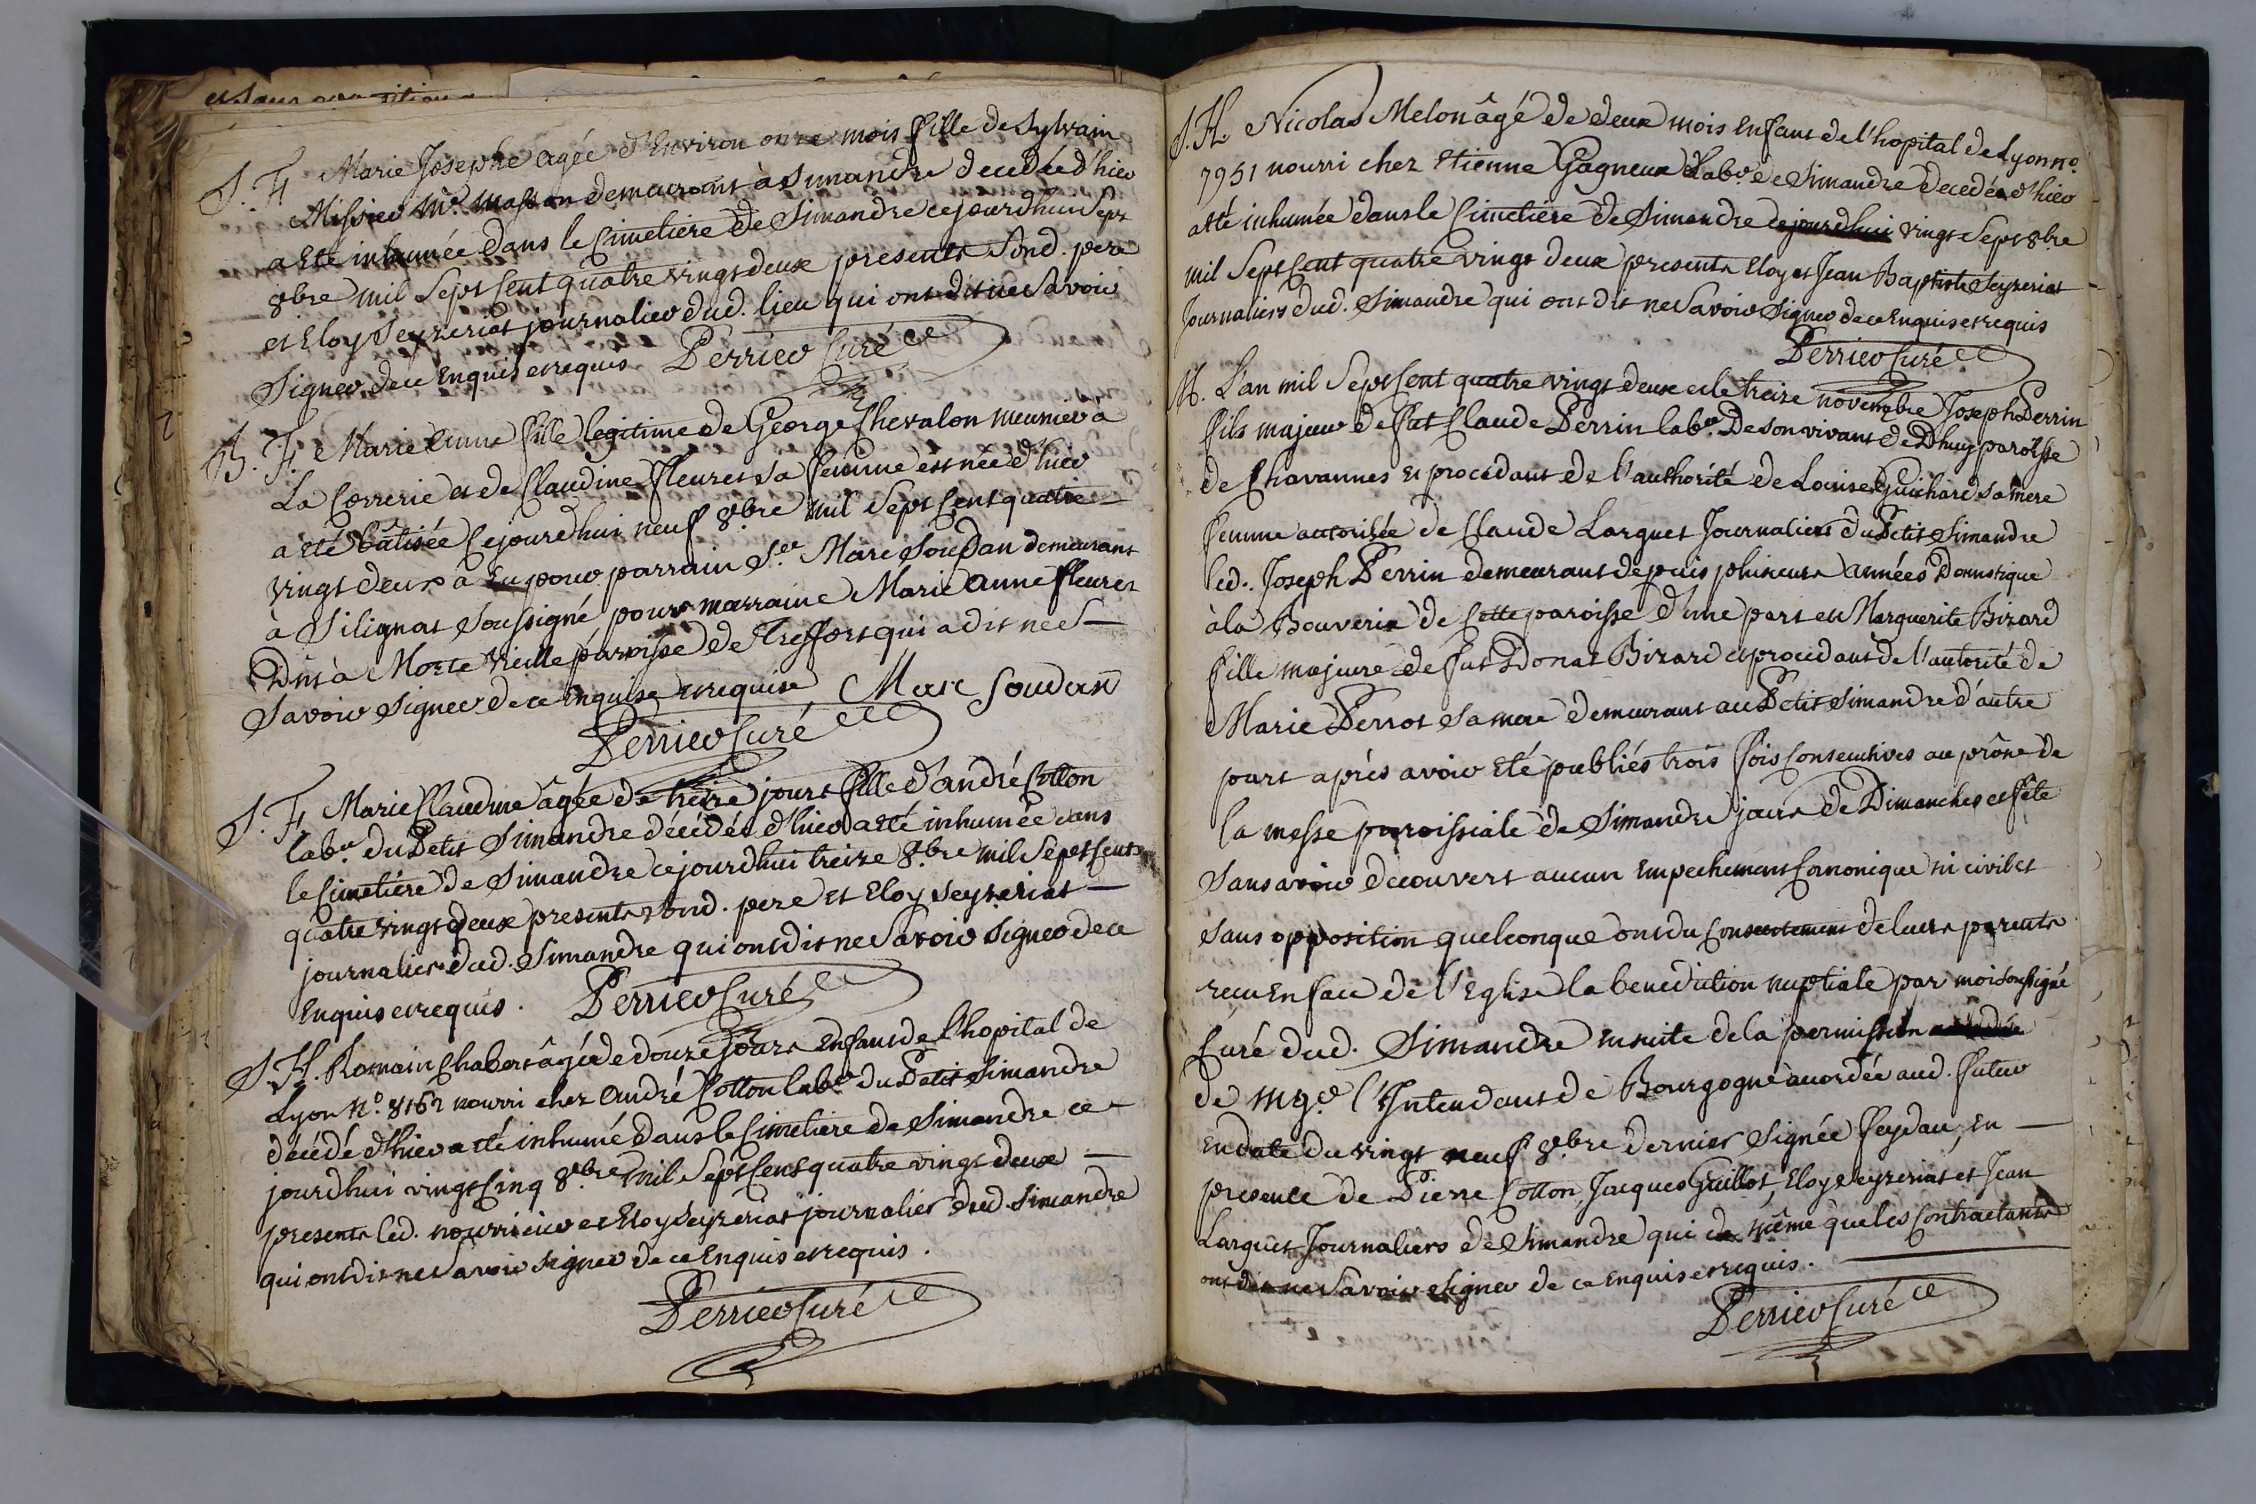 et sans opposition
S. F. Marie Josephe agée d'Environ onze mois fille de Sylvain
Missieu Me. masson demeurant à Simandre decedée d'hier
a eté inhumée dans le Cimetiere de Simandre cejourdhui Sept
8bre mil Sept Cent quatre vingt deux presents Sond. pere
et Eloy Seyzeriat journalier dud. lieu qui ont dit ne Savoir
Signer de ce Enquis et requis Perrier Curé
B. F. Marie Anne fille legitime de George Chevalon meunier à
La Correrie et de Claudine Fleuret sa femme est née d'hier
a eté bâtisée Cejourdhui neuf 8.bre mil Sept Cent quatre
vingt deux a Eu pour parrain Sr. Marc Soudan demeurant
à Silignat Soussigné pour marraine Marie Anne Fleuret
à Morte Vieille paroisse de Treffort qui a dit ne S
Savoir signer de ce Enquise et requise Marc Soudan
Perrier Curé
S. F. Marie Claudine âgée de treize jours fille d'andré Cotton
labr. du Petit Simandre décédée d'hier a eté inhumée dans
le Cimetiére de Simandre ce jourdhui treize 8.bre mil Sept Cent
quatre vingt deux presents sond. pere et Eloy Seyzeriat
journalier dud. Simandre qui ont dit ne Savoir Signer de ce
Enquis et requis. Perrier Curé
S. H. Romain Chabert âgé de douze jours Enfant de l'hopital de
Lyon No. 8162 nourri chez André Cotton labr. du Petit Simandre
décédé d'hier a eté inhumé dans le Cimetiere de Simandre ce
jourdhui vingt Cinq 8.bre mil Sept Cent quatre vingt deux
presents led. nourricier et Eloy Seyzeriat journalier dud. Simandre
qui ont dit ne Savoir signer de ce Enquis et requis.
Perrier Curé
S. H. Nicolas Melon âgé de deux mois Enfant de l'hopital de Lyon no.
7951 nourri chez Etienne Gagneux labr. de Simandre decedé d'hier
a eté inhumée dans le Cimetiere de Simandre cejourdhui vingt Sept 8bre
mil Sept Cent quatre vingt deux presents Eloy et Jean Baptiste Seyzeriat
Journaliers dud. Simandre qui ont dit ne Savoir Signer de ce Enquis et requis
Perrier Curé
M. L'an mil Sept Cent quatre vingt deux et le treize novembre Joseph Perrin
fils majeur de fut Claude Perrin labr. De son vivant de Dhuy paroisse
de Chavannes et procédant de l'authorité de Louise Guichard sa mere
femme autorisée de Claude Larguet Journalier du Petit Simandre
led. Joseph Perrin demeurant depuis plusieurs années Domestique
à la Bouverie de Cette paroisse d'une part et Marguerite Bizard
fille majeure de fut Donat Bizard et procedant de l'autorité de
Marie Perrot sa mere demeurant au Petit Simandre d'autre
part après avoir eté publiés trois fois Consecutives au prône de
la messe paroissiale de Simandre jours de Dimanches et fête
Sans avoir decouvert aucun Empechement Canonique ni civil et
sans opposition quelconque ont du Consentement de leurs parents
reçu En face de l'Eglise la benediction nuptiale par moi soussigné
Curé dud. Simandre ensuite de la permission
de mgr. l'Intendant de Bourgogne accordée aud. futur
En date du vingt neuf 8.bre dernier Signée Feydau, En
presence de Pierre Cotton, Jacques Guillot, Eloy Seyzeriat et Jean
Larguet Journaliers de Simandre qui de même que les Contractants
ont dit ne Savoir signer de ce Enquis et requis.
Perrier Curé